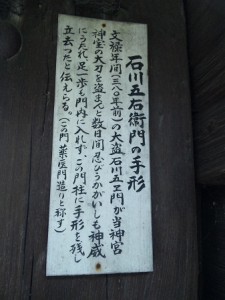 石川五右衛門の手形
文禄年間(三八〇年前)の大盗石川五ヱ門が当神宮
神宝の太刀を盗まんと数日間忍びうかがいしも神威
にうたれ足一歩も門内に入れず、この門柱に手形を残し
立去ったと伝えらる。(この門 薬医門造りと称す)